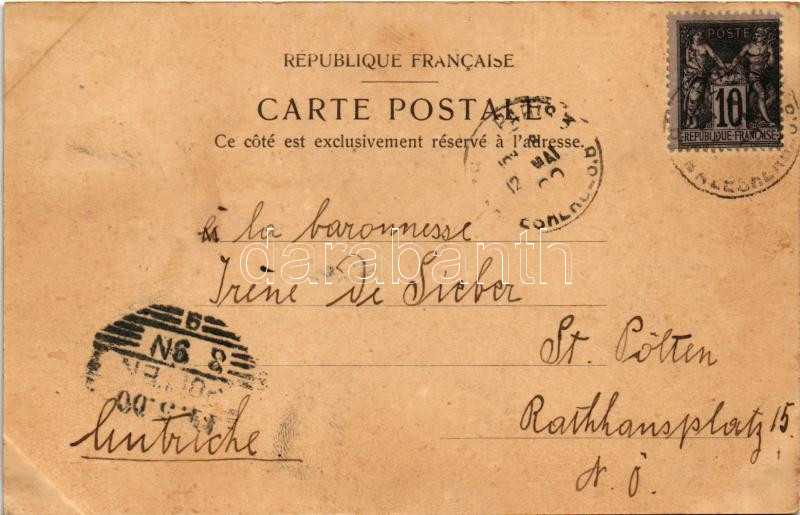 RÉPUBLIQUE FRANÇAISE
CARTE POSTALE
Ce côté est exclusivement réservé à l'adresse.
POSTE
10
RÉPUBLIQUE FRANÇAISE
PARIS
12 MAI 00
à la baronnesse
darabanth
Irène de Sieber
St. Pölten
Rathhausplatz 15.
N. Ö.
Autriche
9
3 9N
PÖLTEN